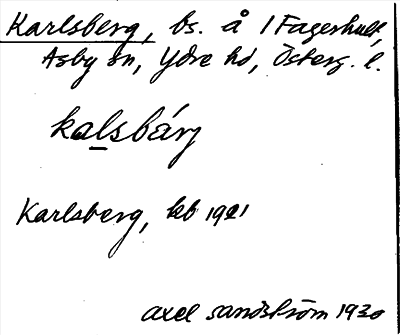 Karlsberg, bs. å 1 Fagerhult,
Asby sn, Ydre hd, Österg. l.
kalsbárj
Karlsberg, kb 1921
Axel Sandström 1930